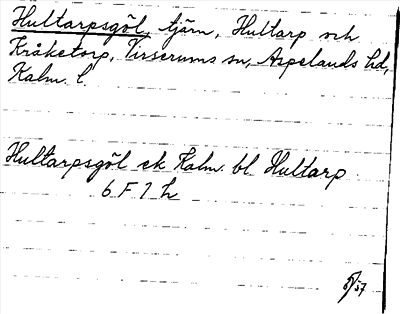 Hultarpsgöl, tjärn, Hultarp och
Kråketorp, Virserums sn, Aspelands hd,
Kalm. l.
Hultarpsgöl ek Kalm. bl. Hultarp
6 F 7 h